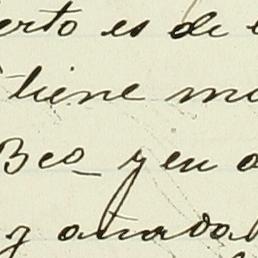 erto es de
tiene
Beo y en
y añada